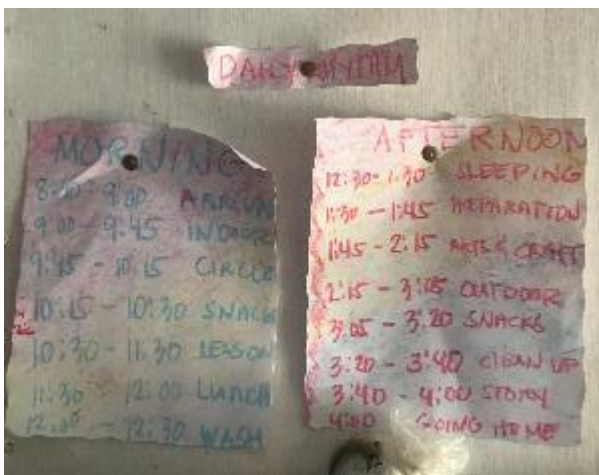 DAILY RYTHM
MORNING
8:30 - 9:00 ARRIVAL
9:00 - 9:45 INDOOR
9:45 - 10:15 CIRCLE
10:15 - 10:30 SNACK
10:30 - 11:30 LESSON
11:30 - 12:00 LUNCH
12:00 - 12:30 WASH
AFTERNOON
12:30 - 1:30 SLEEPING
1:30 - 1:45 PREPARATION
1:45 - 2:15 ARTS & CRAFT
2:15 - 3:05 OUTDOOR
3:05 - 3:20 SNACKS
3:20 - 3:40 CLEAN UP
3:40 - 4:00 STORY
4:00 GOING HOME